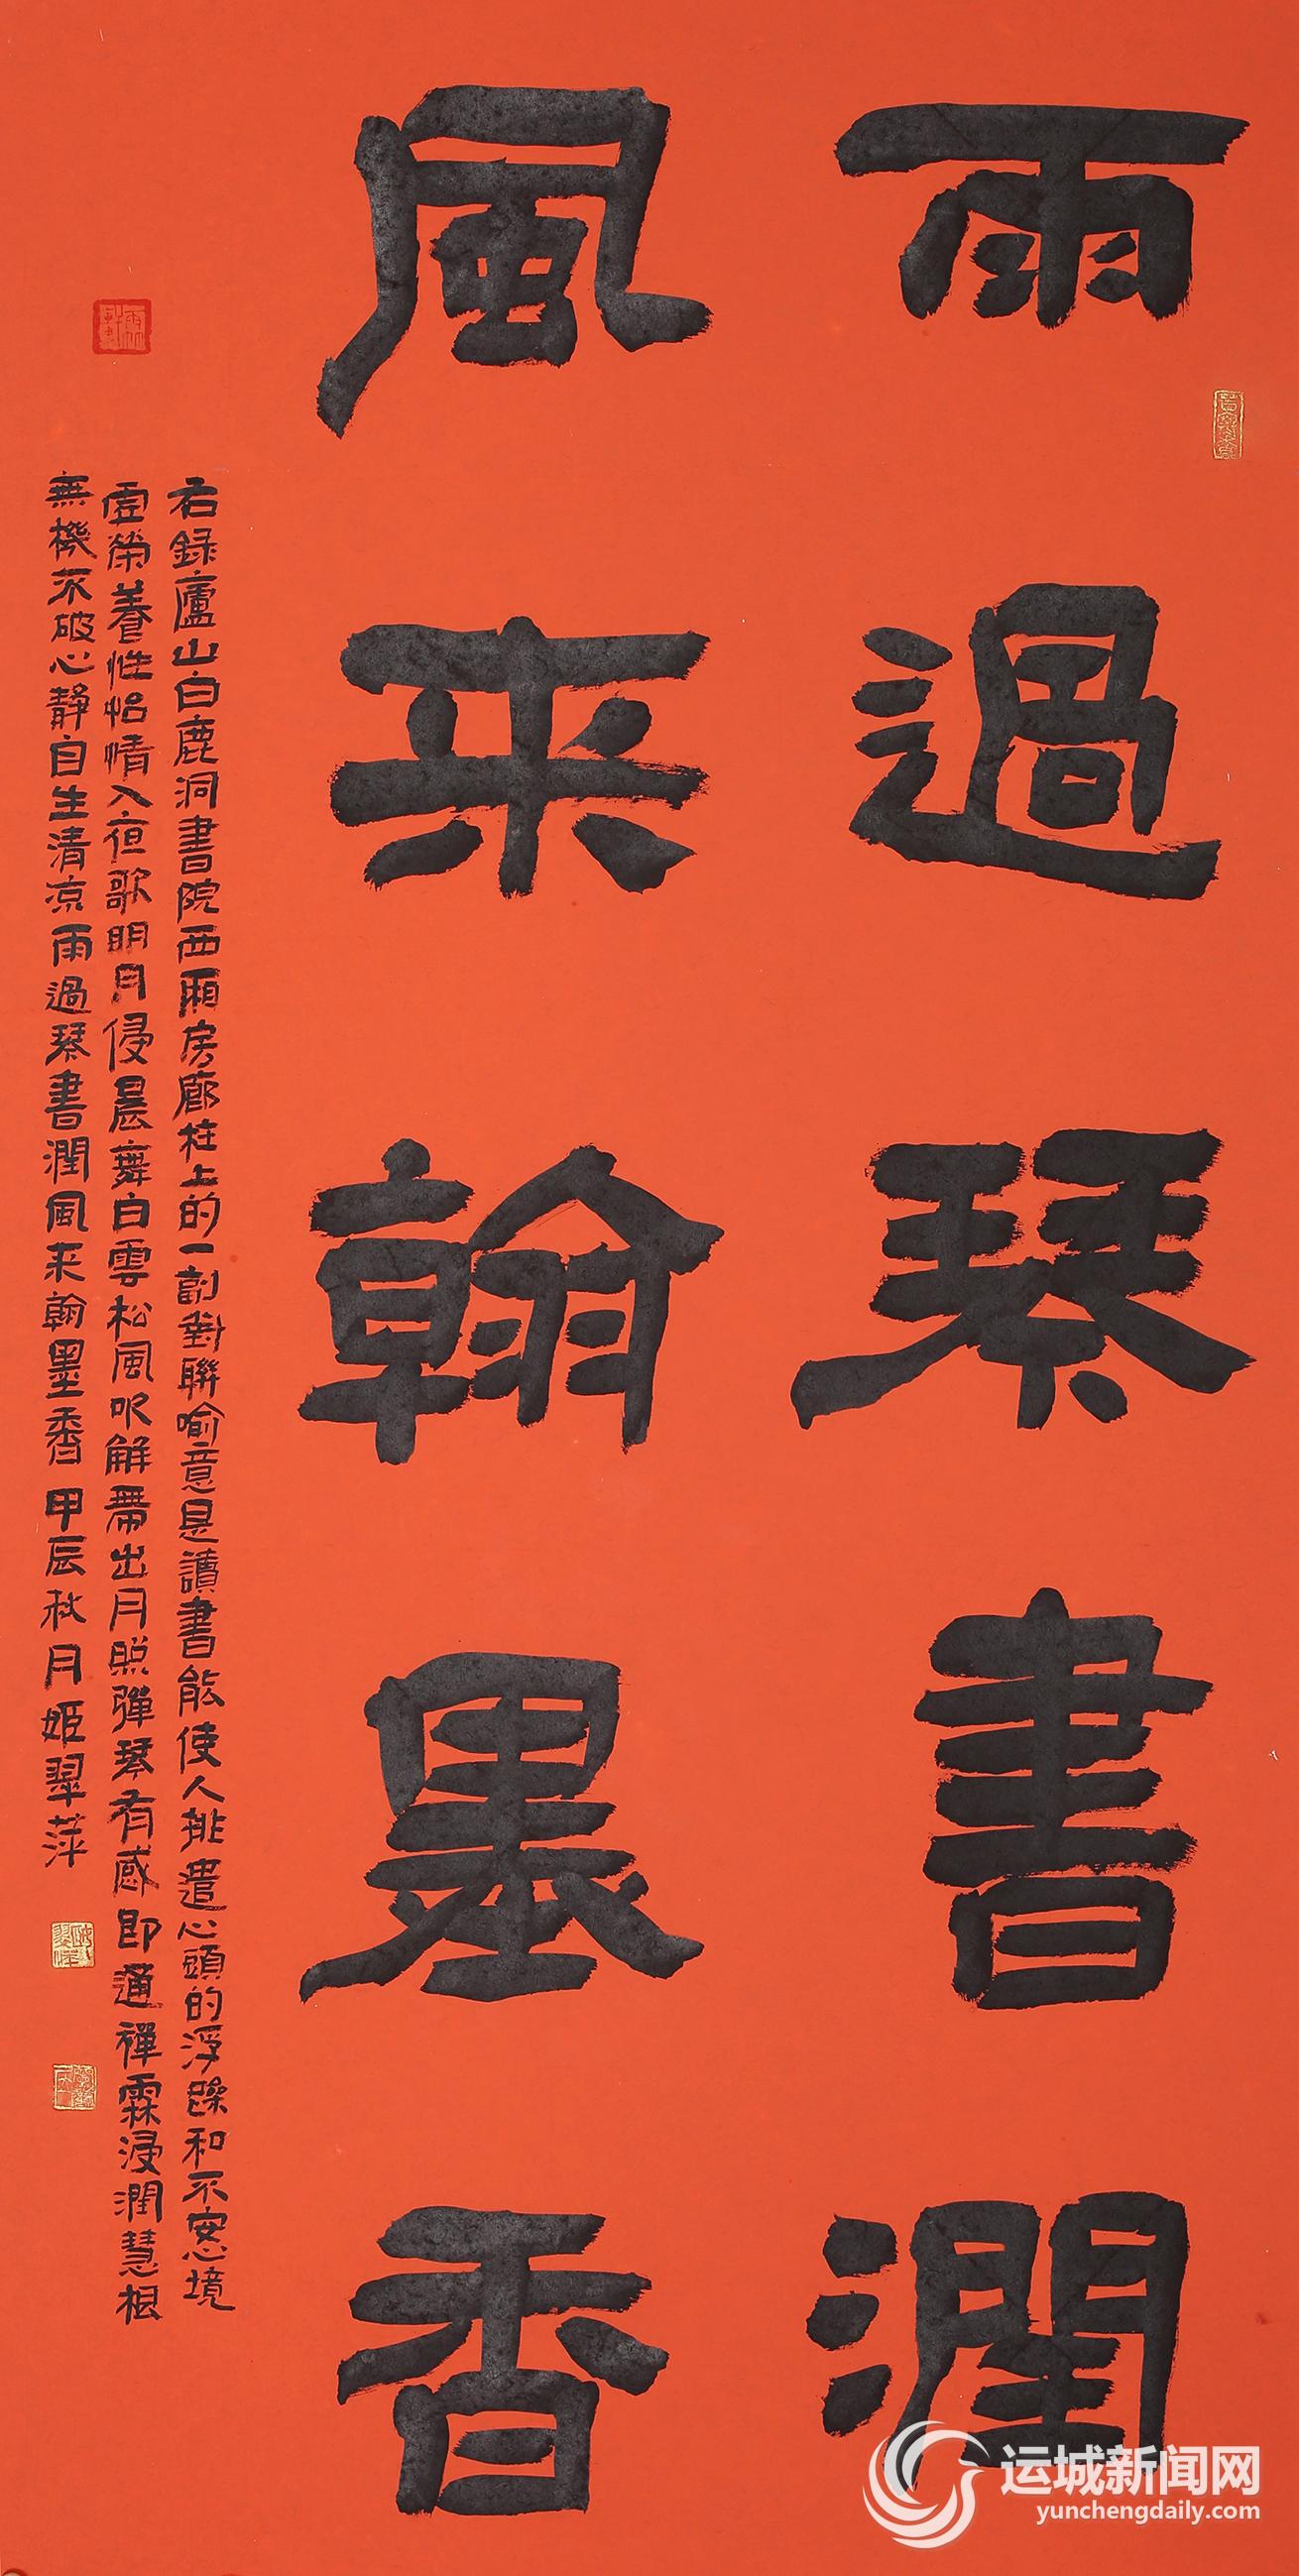 雨過琴書潤
風来翰墨香
右録廬山白鹿洞書院西廂房廊柱上的一副對聯喻意是讀書能使人排遣心頭的浮躁和不安心境
虛榮養性怡情入夜歌明月侵晨舞白雲松風吹解帶山月照彈琴有感即通禪霖浸潤慧根
無機不破心静自生清凉雨過琴書潤風来翰墨香甲辰秋月姬翠萍
运城新闻网
yunchengdaily.com